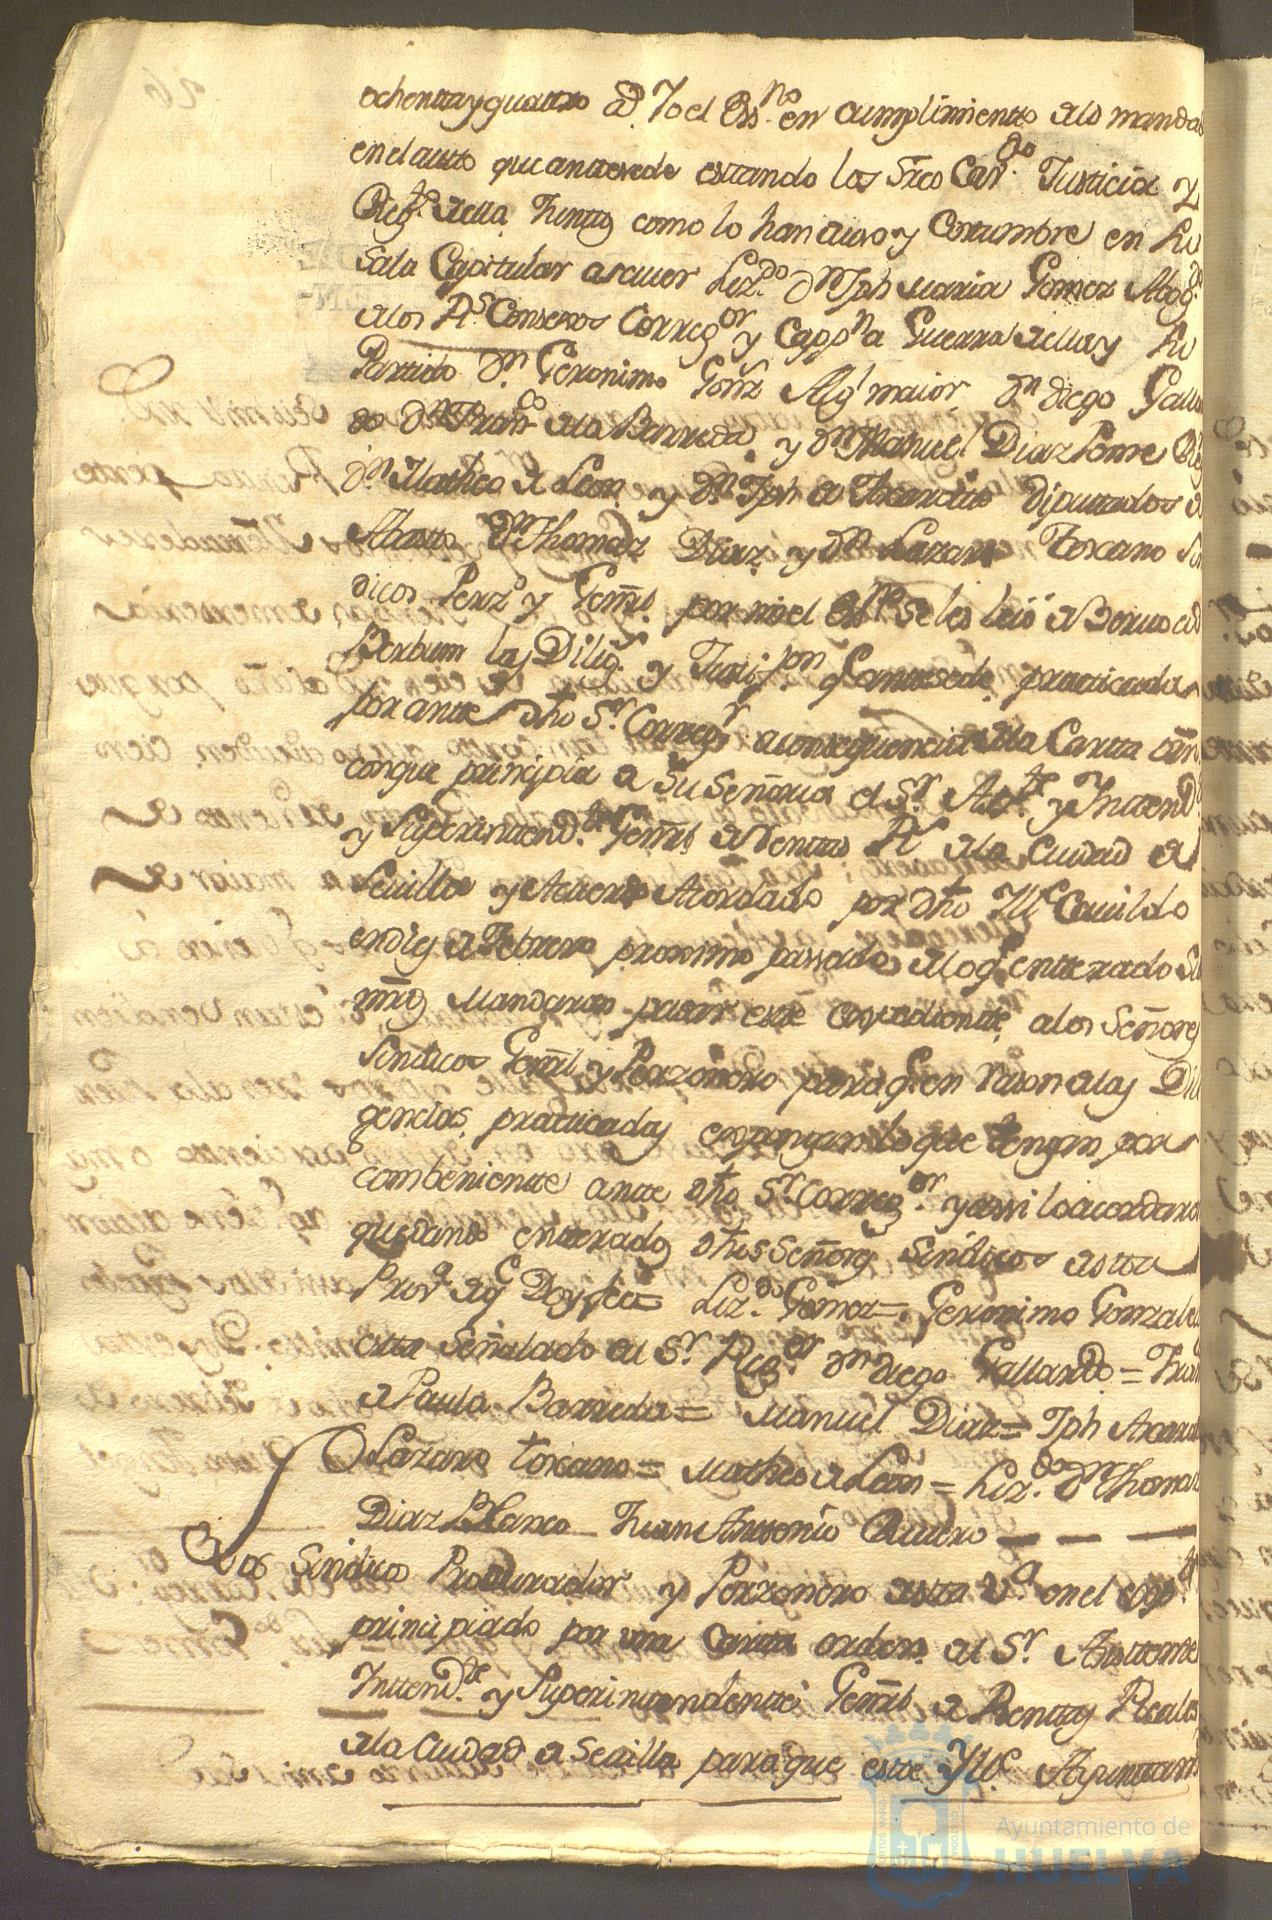 ochenta y quatro a.ˢ Yo el Ess.ⁿᵒ en cumplimiento alo manda
en el auto que antesede estando los Sres Cav.ᵈᵒ Justicia y
Reg.ᵗᵒ della Juntos como lo han auso y Costumbre en su
Sala Capitular asauer Liz.ᵈᵒ Dⁿ Jph Maria Gomez Abog.ᵈᵒ
alos R.ˢ Consexos Correg.ᵒʳ y Capp.ⁿ a Guerra della y su
Partido Dⁿ. Geronimo Gonz Alg maior Dⁿ diego Gallar
do Dⁿ Franᶜᵒ ala Barreda y Dⁿ Manuel Diaz Ponse Re
Dⁿ Matheo a Leon y Dⁿ Jph diputados a
Abasto Dⁿ Thomas Diaz y Dⁿ Lazaro Toscano Sin
dicos Perz.ᵒ y Genˡ. por mi el Essⁿᵒ se les leió a Bervo ad
Berbum las Dilig.ˢ y antesede practicadas
por ante dho Sʳ. Correg.ʳ a consequencia ala Carta orn
conque prinsipia a Su Señoria el Sʳ. As.ᵗᵉ y Intend.ᵗᵉ
y Superintend.ᵗᵉ Genˡ aRentas Rˢ ala Ciudad a
Seuilla y Acuerdo Acordado por dho Illᵉ Cauildo
en dies a Febrero proximo passado alo q enterado Su
mrd Mandaron pasar este expediente alos Señores
Sindicos Genˡ y Perzonero para q en rason alas Dili
gencias practicadas expongan lo que tengan por
combeniente ante dho Sʳ. Correg.ᵒʳ y assi lo acordaron
quedando enterados dhos Señores Sindicos a esta
Prov.ᵃ a q Doy fee = Liz.ᵈᵒ Gomez = Geronimo Gonzales
esta Señalado al Sʳ. Reg.ᵒʳ dⁿ diego Gallardo = Fran
a Paula Barreda = Manuel Diaz = Jph
Lazaro toscano = Matheo a Leon = Liz.ᵈᵒ Dⁿ Thomas
Diaz Blanco = Juan Antonio Quintero
Los Sindico Procurador y Perzonero a esta V.ᵃ en el exp.ᵗᵉ
principiado por una Carta orden al Sʳ Asistente
Intend.ᵗᵉ y Superintendente Genˡ a Rentas Reales
ala Ciudad a Seuilla para que este Yllᵉ Ayuntam
Ayuntamiento de
HUELVA